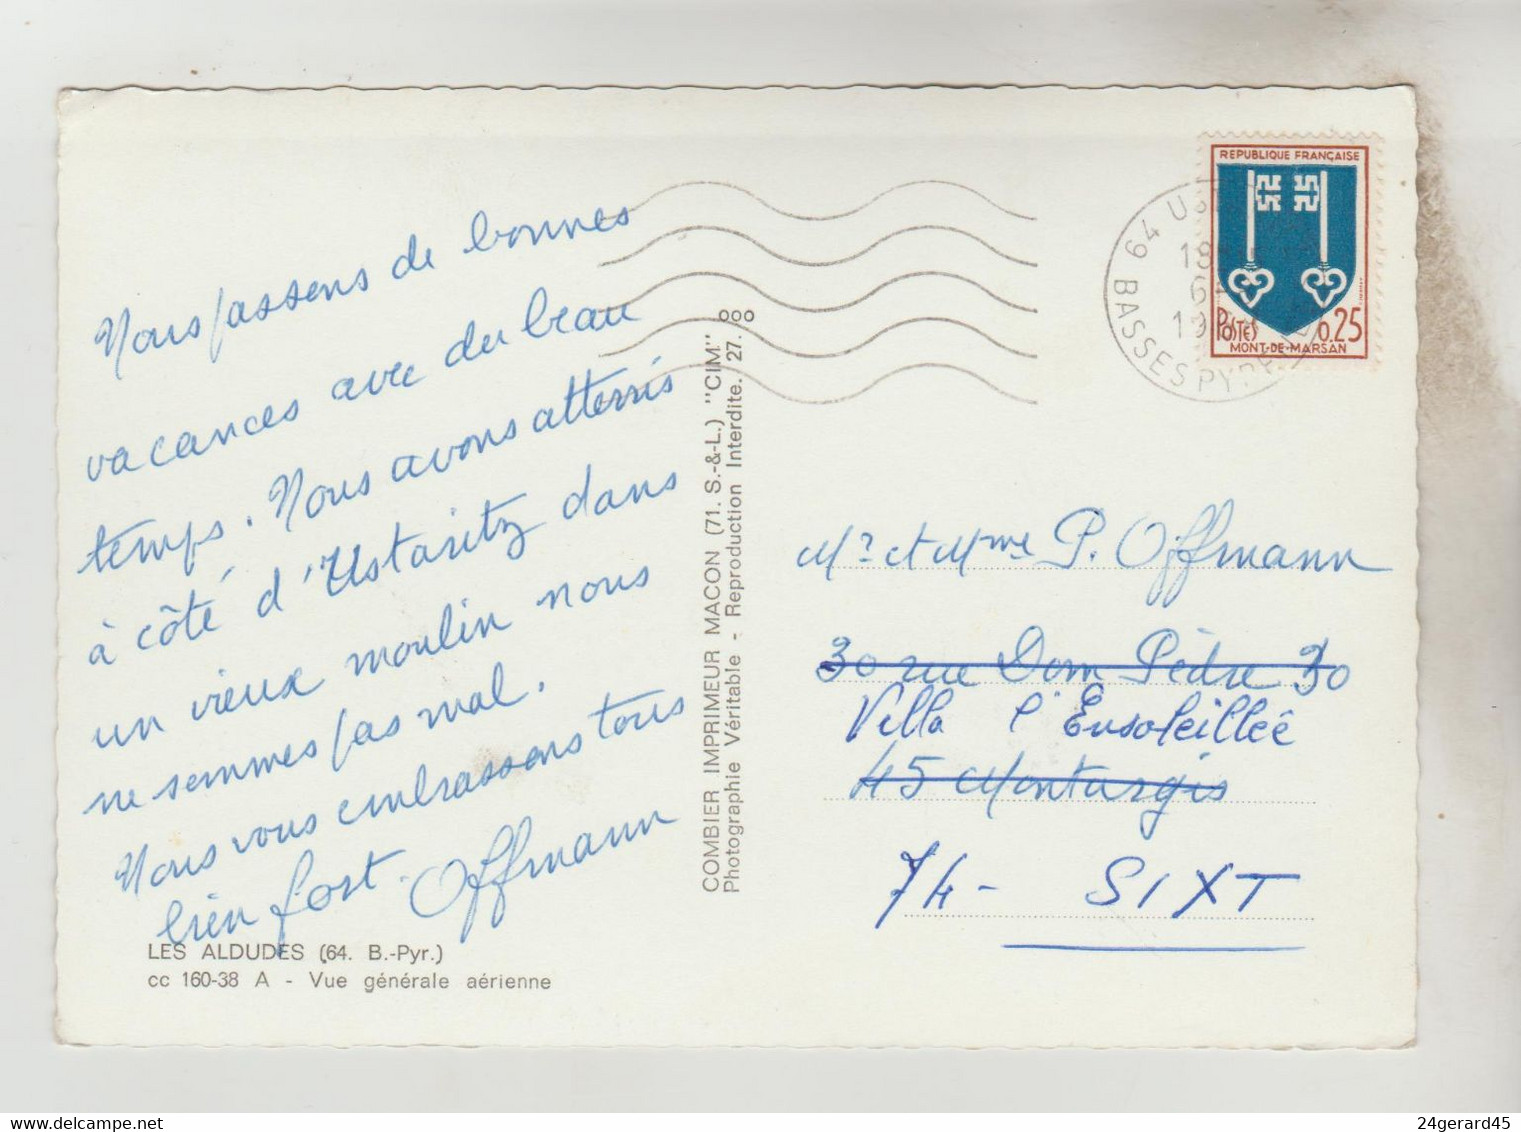 Nous passons de bonnes
vacances avec du beau
temps. Nous avons atterris
à côté d'Ustaritz dans
un vieux moulin nous
ne sommes pas mal.
Nous vous embrassons tous
bien fort. Offmann
LES ALDUDES (64. B.-Pyr.)
cc 160-38 A - Vue générale aérienne
COMBIER IMPRIMEUR MACON (71. S.-&-L.) "CIM"
Photographie Véritable - Reproduction Interdite. 27. ooo
REPUBLIQUE FRANÇAISE
POSTES 0,25
MONT-DE-MARSAN
64
BASSES PYR
Mr et Mme P. Offmann
30 rue Dom Pèdre 30
Villa l'Ensoleillée
45 Montargis
74 - SIXT
24gerard45